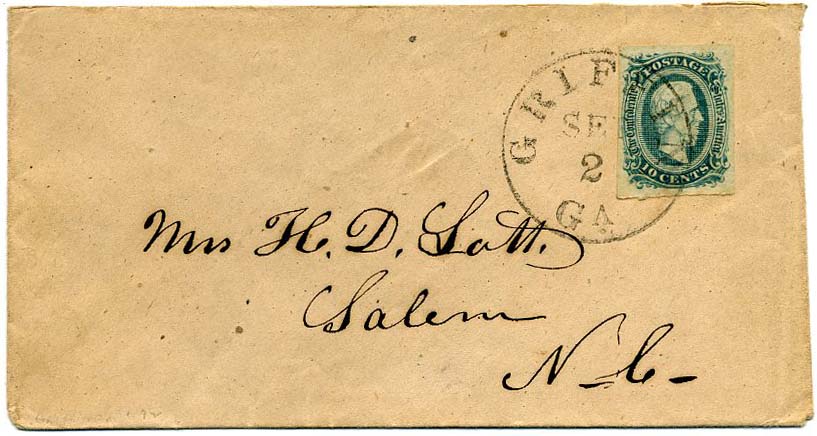 GRIF
SEP
2
GA
POSTAGE
The Confederate States of America
10 CENTS
Mrs H. D. Lott.
Salem
N. C.